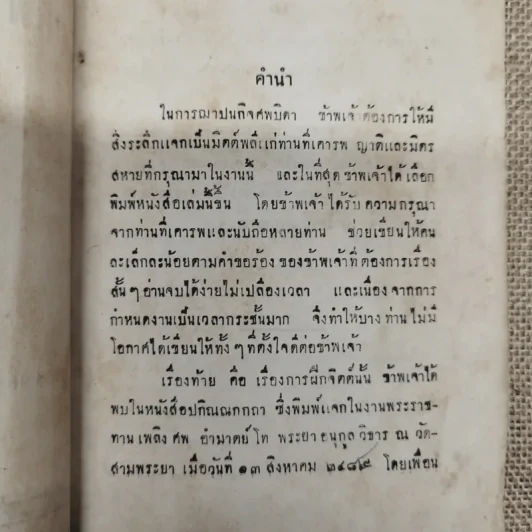 คำนำ
ในการฌาปนกิจศพบิดา ข้าพเจ้าต้องการให้มี
สิ่งระลึกแจกเป็นมิตต์พลีแก่ท่านที่เคารพ ญาติและมิตร
สหายที่กรุณามาในงานนี้ และในที่สุด ข้าพเจ้าได้ เลือก
พิมพ์หนังสือเล่มนี้ขึ้น โดยข้าพเจ้า ได้รับ ความ กรุณา
จากท่านที่เคารพและนับถือหลายท่าน ช่วยเขียนให้คน
ละเล็กละน้อยตามคำขอร้อง ของข้าพเจ้าที่ ต้องการเรื่อง
สั้น ๆ อ่านจบได้ง่ายไม่เปลืองเวลา และเนื่อง จากการ
กำหนดงานเป็นเวลากระชั้นมาก จึงทำให้บาง ท่าน ไม่มี
โอกาศได้เขียนให้ทั้ง ๆ ที่ตั้งใจดีต่อข้าพเจ้า
เรื่องท้าย คือ เรื่องการฝึกจิตต์นั้น ข้าพเจ้าได้
พบในหนังสือปกิณณกกถา ซึ่งพิมพ์แจกในงานพระราช-
ทาน เพลิง ศพ อำมาตย์ โท พระยา อนุกูล วิธาร ณ วัด-
สามพระยา เมื่อวันที่ ๑๓ สิงหาคม ๒๔๘๙ โดยเพื่อน